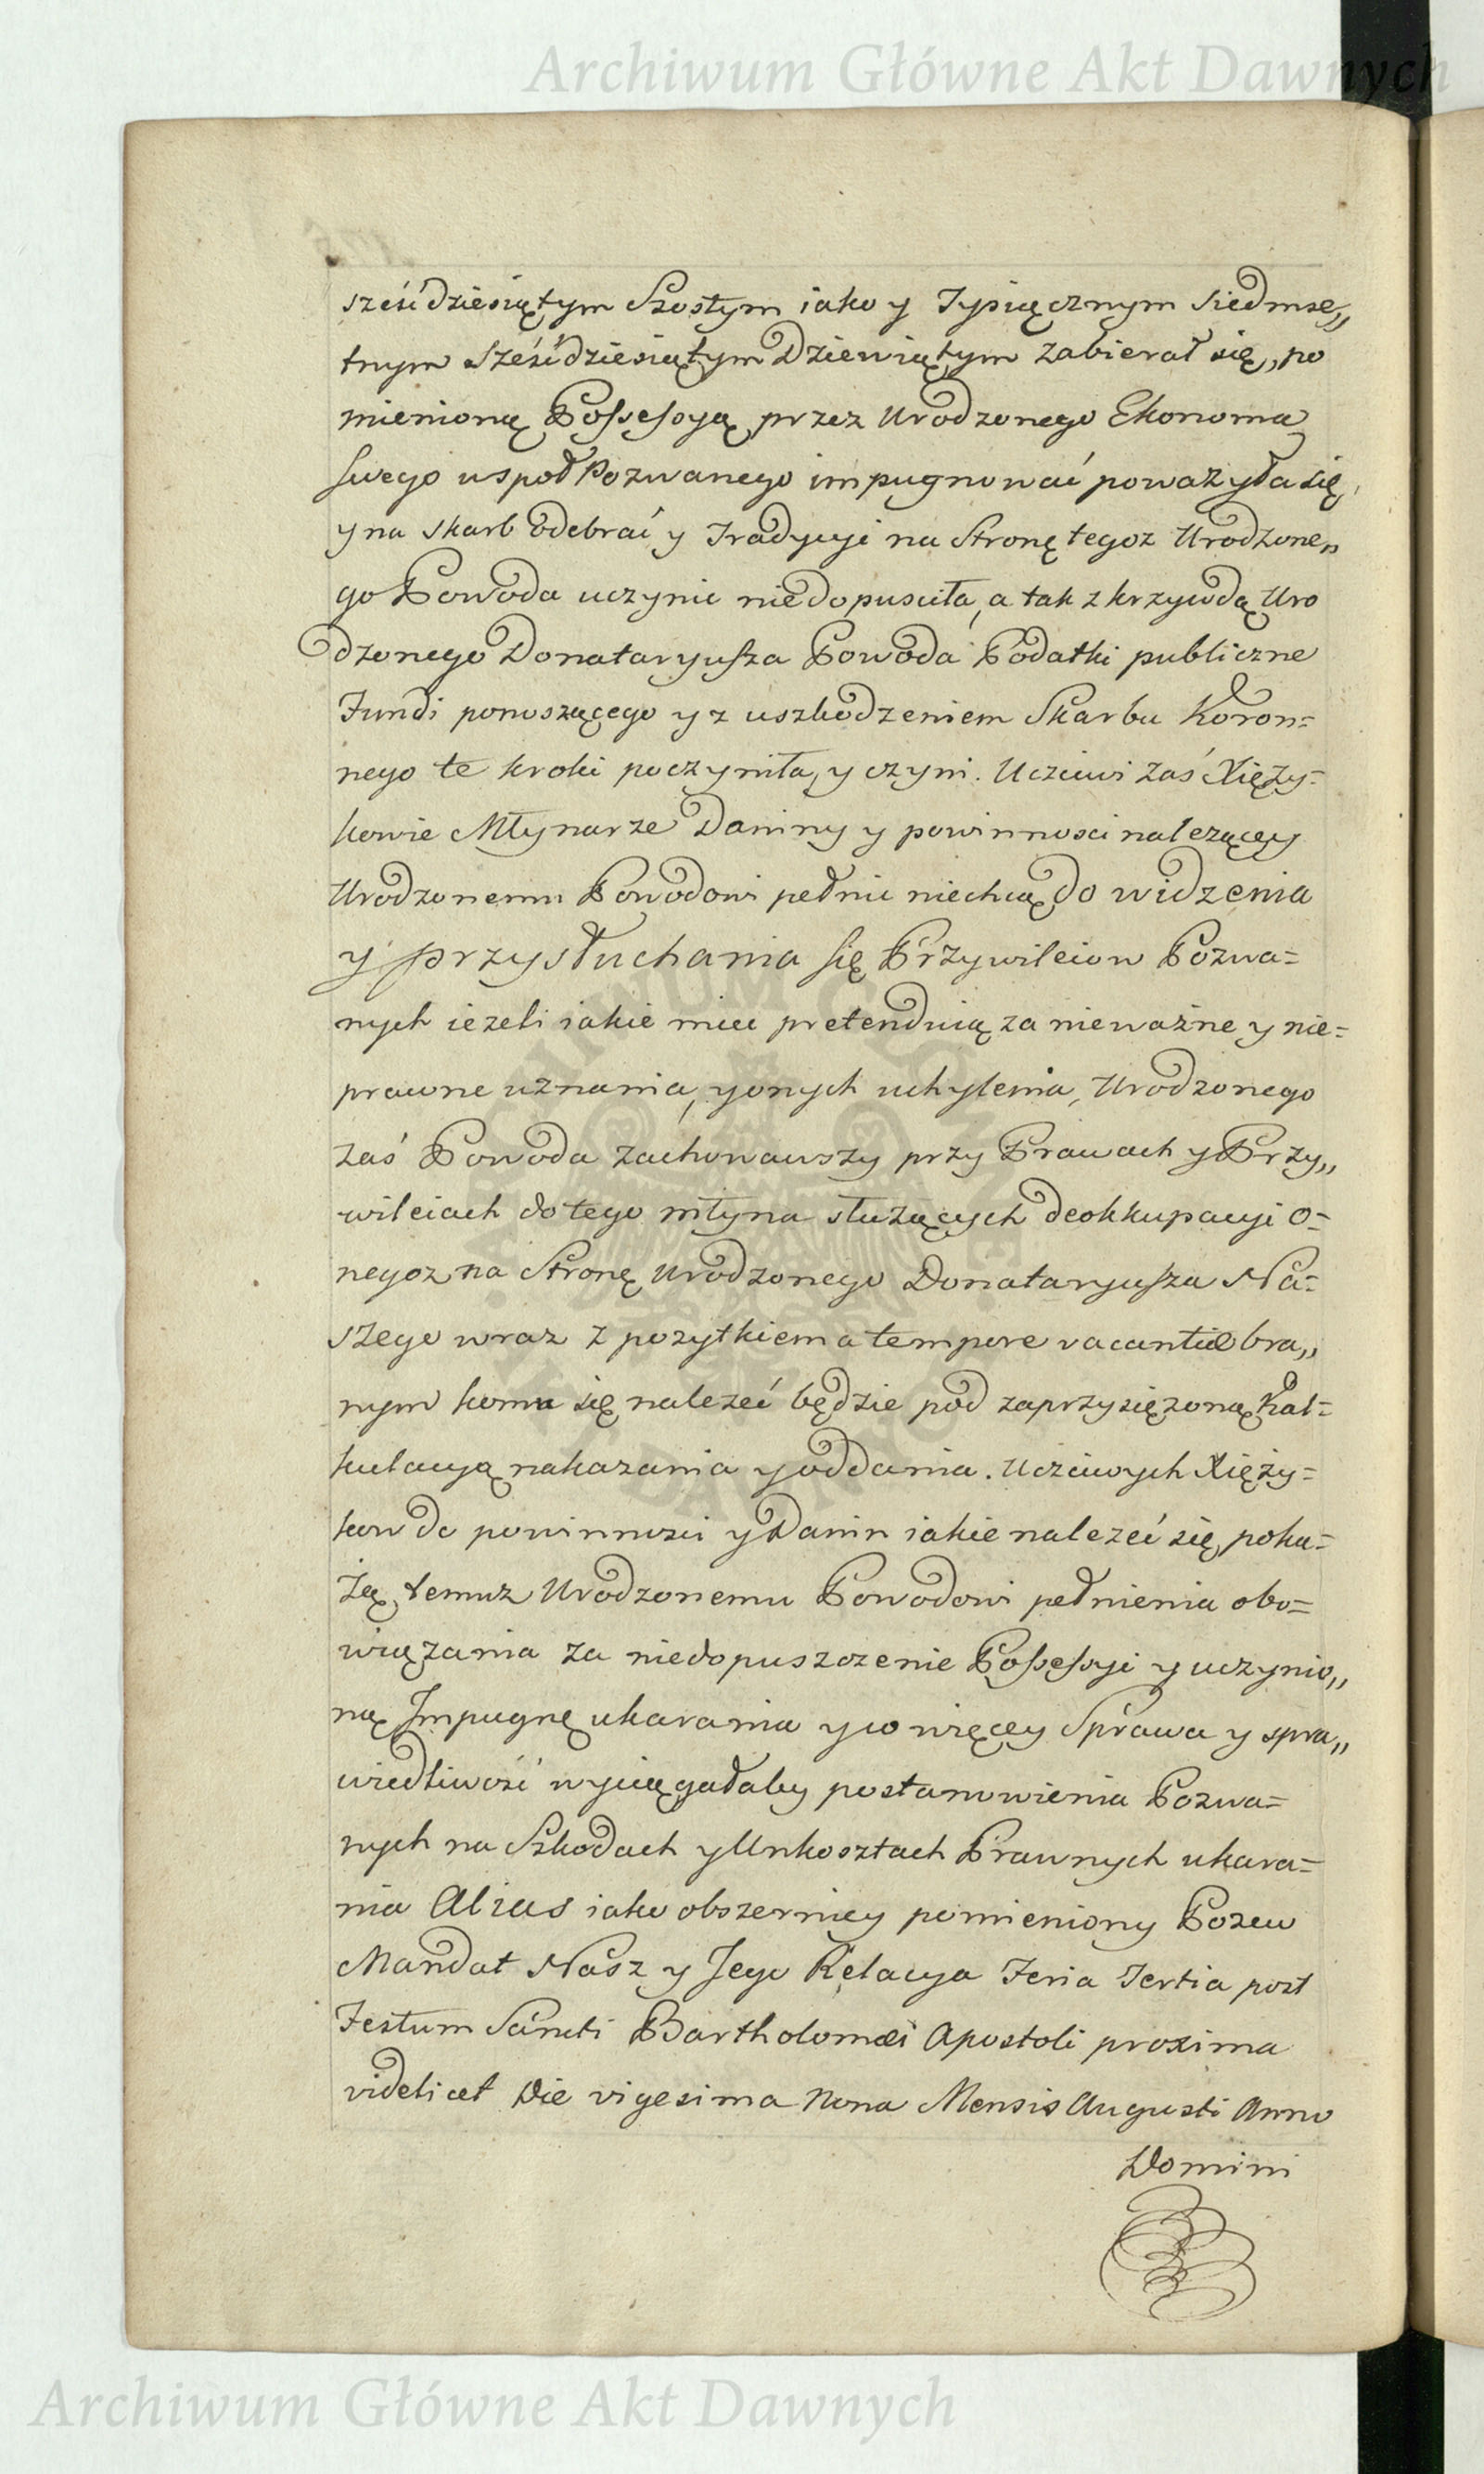 Archiwum Główne Akt Dawnych
sześćdziesiątym Szostym iako y Tysiącznym siedmse„
tnym sześćdziesiątym Dziewiątym zabierał się, po
mienioną Possessyą przez Urodzonego Ekonoma
swego wspoł Pozwanego impugnować poważyła się,
y na skarb Odebrać y Tradycyi na Stronę tegoz Urodzone„
go Powoda uczynic niedopusciła, a tak z krzywdą Uro
dzonego Donataryusza Powoda Podatki publiczne
Fundi ponoszącego y z uszkodzeniem Skarbu Koron=
nego te kroki poczyniła, y czyni. Uczciwi zaś Xięży=
kowie Młynarze Daniny y powinnosci nalezącey
Urodzonemu Powodowi pełnic niechcą do widzenia
y przysłuchania się Przywileiow Pozwa=
nych iezeli iakie miec pretenduią za nieważne y nie=
prawne uznania, y onych uchylenia, Urodzonego
zaś Powoda zachowawszy przy Prawach y Przy„
wileiach do tego młyna służących deokkupacyi o=
negoz na Stronę Urodzonego Donataryusza Na=
szego wraz z pozytkiem a tempore vacantiæ bra„
nym komu się nalezeć będzie pod zaprzysięzoną Kal=
kulacyą nakazania y oddania. Uczciwych Xięży=
kow do powinnosci y Danin iakie nalezeć się poka=
żą, temuz Urodzonemu Powodowi pełnienia obo=
wiązania za niedopuszczenie Possessyi y uczynio„
ną Impugnę ukarania y co więcey Sprawa y spra„
wiedliwość wyciągałaby postanowienia Pozwa=
nych na Szkodach y Unkosztach Prawnych ukara=
nia Alias iako obszerniey pomieniony Pozew
Mandat Nasz y Jego Relacya Feria Tertia post
Festum Sancti Bartholomæi Apostoli proxima
videlicet Die vigesima Nona Mensis Augusti Anno
Domini
Archiwum Główne Akt Dawnych